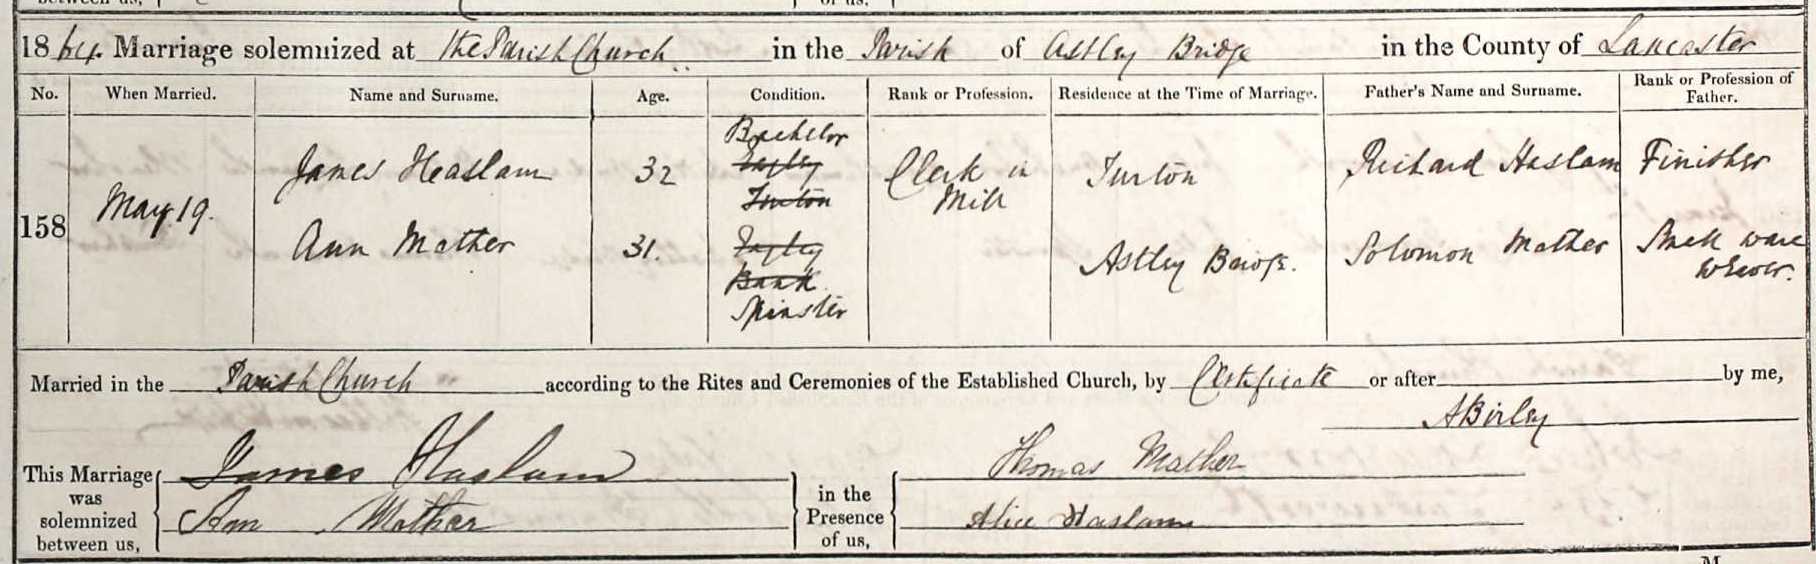 1864. Marriage solemnized at the Parish Church in the Parish of Astley Bridge in the County of Lancaster
No. When Married. Name and Surname. Age. Condition. Rank or Profession. Residence at the Time of Marriage. Father's Name and Surname. Rank or Profession of Father.
158 May 19. James Heaslam 32 Bachelor Clerk in Mill Turton Richard Haslam Finisher
Turton
Ann Mather 31. Astley Bridge. Solomon Mather ware weaver.
Bank
Spinster
Married in the Parish Church according to the Rites and Ceremonies of the Established Church, by Certificate or after by me,
A Birley
This Marriage was solemnized between us, James Haslam in the Presence of us, Thomas Mather
Ann Mather Alice Haslam